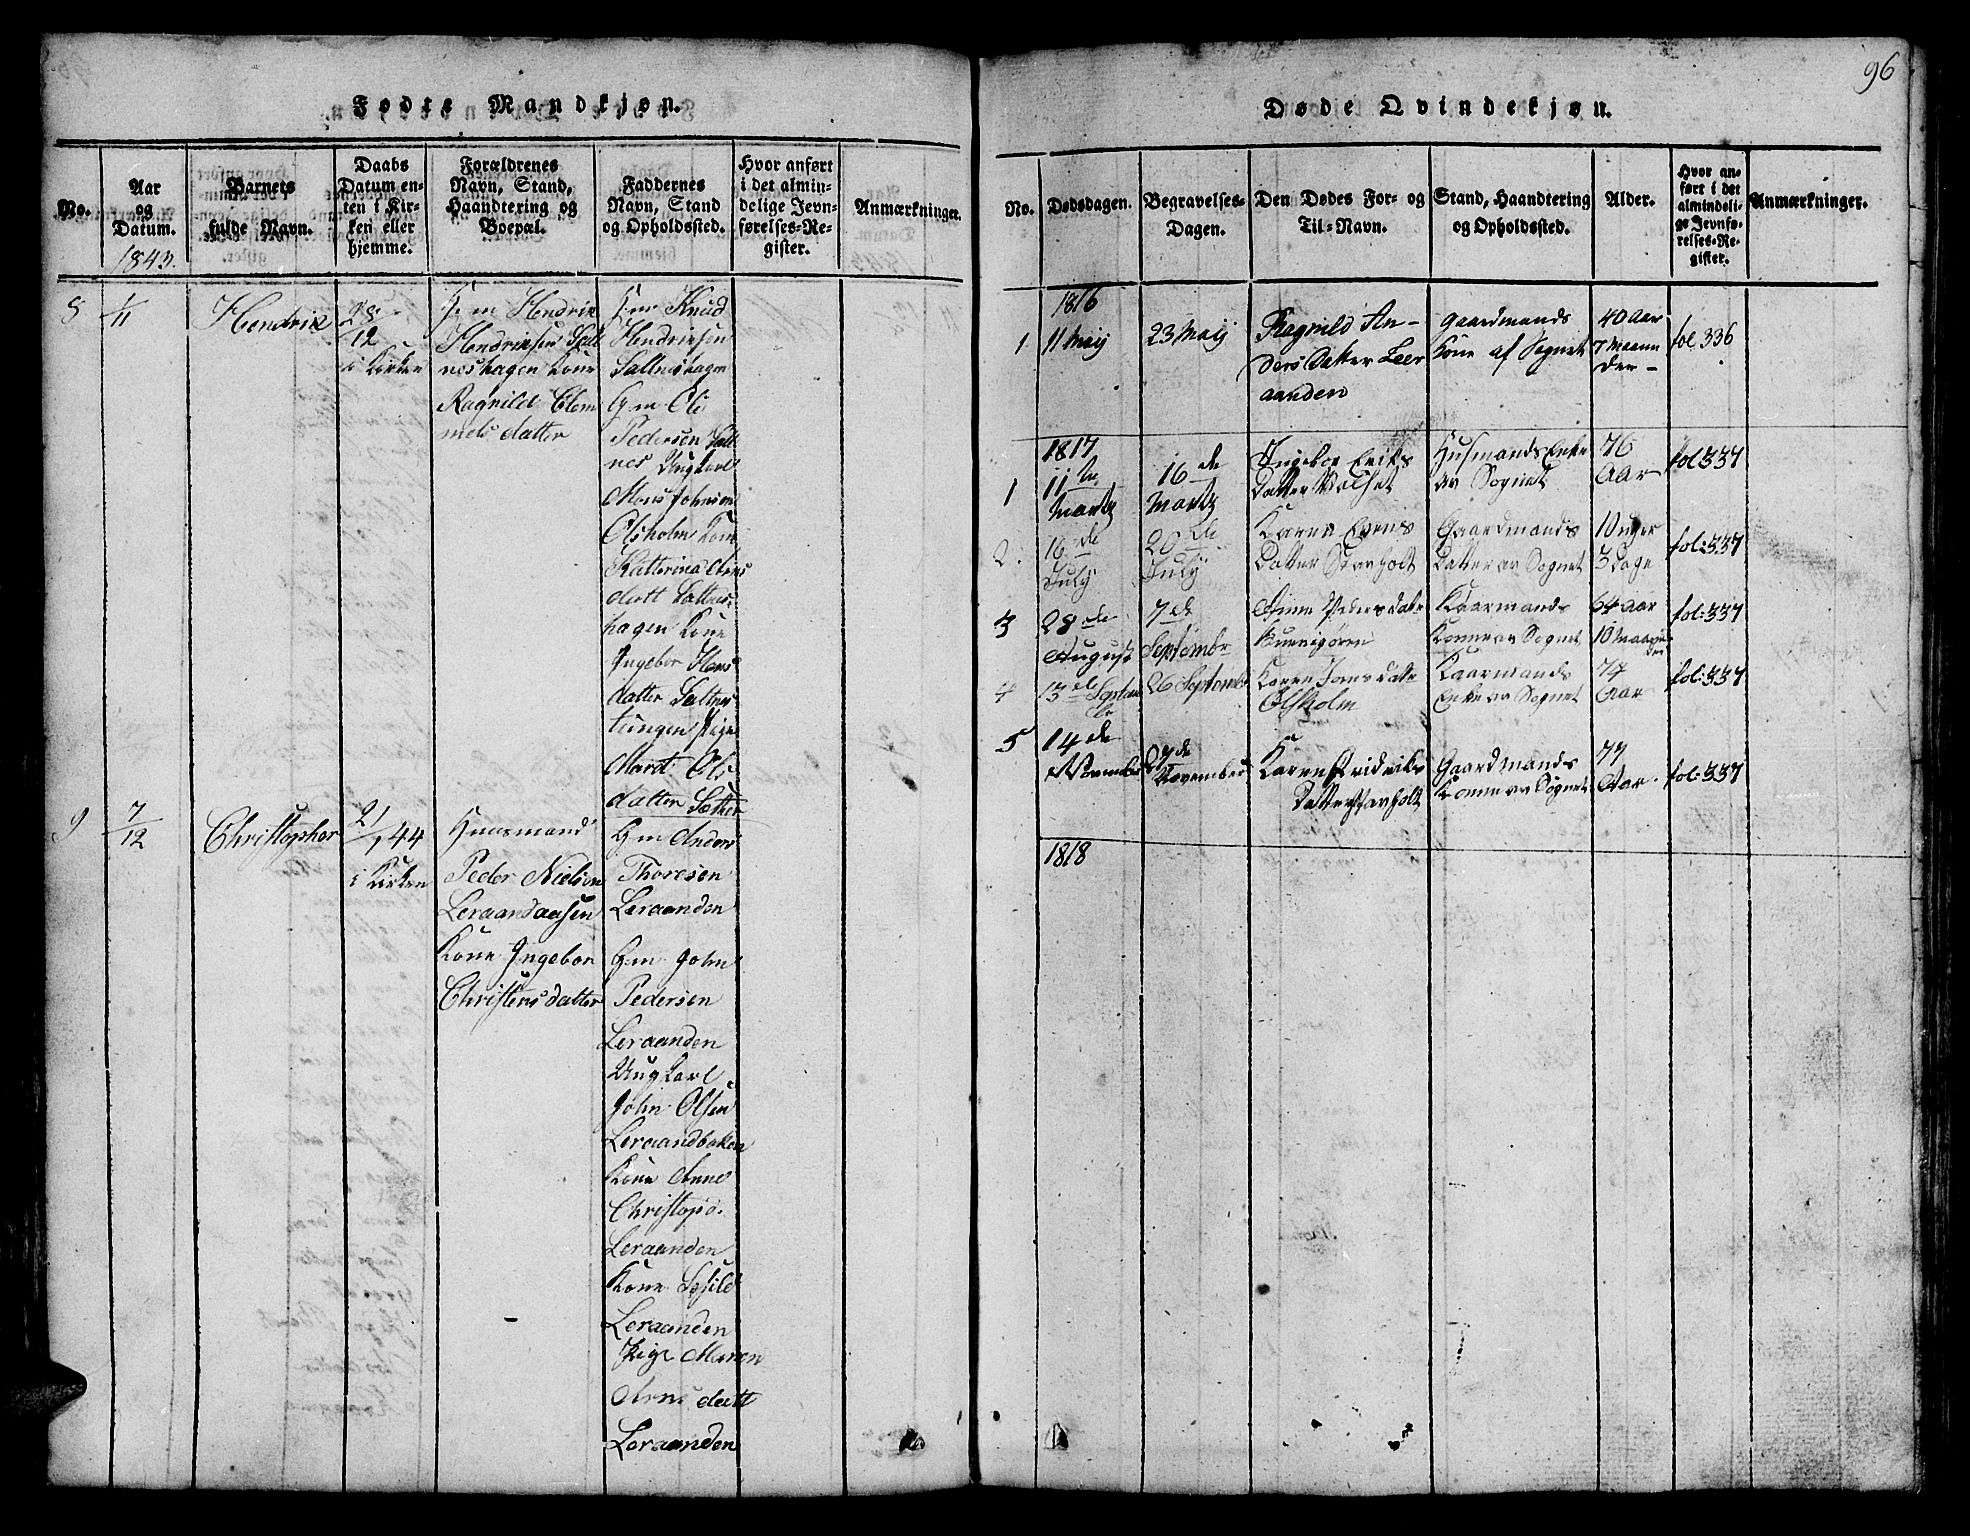 Fødte Mandkjøn.
No.
Aar
og
Datum.
1843.
Barnets
fulde Navn.
Daabs
Datum en-
ten i Kir-
ken eller
hjemme.
Forældrenes
Navn, Stand,
Haandtering og
Boepæl.
Faddernes
Navn, Stand
og Opholdssted.
Hvor anført
i det almin-
delige Jevn-
førelses-Re-
gister.
Anmærkninger.
8
1/11
Hendrik
28
12
i Kirken
G m Hendrik
Hendriksen Salt
neshagen Kone
Ragnild Clem
mets datter
G m Knud
Hendriksen
Saltneshagen
G m Ole
Pedersen Salt
nes Ungkarl
Mons Johnsen
Olsholm Kone
Katterina Arns
datt Saltnes-
hagen Kone
Ingebor Hans
datter Saltnes
tungen Pige
Maret Ols
datter Sæther
9
7/12
Christophor
2/1 44
i Kirken
Huusmand
Peder Nielsen
Leraandaasen
Kone Ingebor
Christens datter
G m Anders
Thoresen
Leraanden
G m John
Pedersen
Leraanden
Ungkarl
John Olsen
Leraandbaken
Kone Anne
Christopd.
Leraanden
Kone Sesild
Leraanden
Pige Maren
Arns datt
Leraanden
96
Døde Qvindekjøn.
No.
Dødsdagen.
Begravelses-
Dagen.
Den Dødes For- og
Til-Navn.
Stand, Haandtering
og Opholdssted.
Alder.
Hvor an-
ført i det
almindeli-
ge Jevnfø-
relses-Re-
gister.
Anmærkninger.
1816
1
11 Maij
23 Maij
Ragnild An-
ders Datter Leer
aanden
Gaardmands
Kone af Sognet
40 Aar
7 Maane
der
fol 336
1817
1
11te
Martz
16de
Martz
Ingebor Eriks
Datter Volset
Husmands Enke
av Sognet
76
Aar
fol: 337
2.
16de
July
20de
July
Karen Evens
Datter Stavholt
Gaardmands
Datter av Sognet
10 uger
3 Dage
fol: 337
3
28de
August
7de
Septembr
Anne Peders datr
Kaarmands
Kone av Sognet
64 Aar
10 Maane
der
fol: 337
4
13de Septem
br
26 Septembr
Karen Jons datr
Olsholm
Kaarmands
Enke av Sognet
74
Aar
fol: 337
5
14de
November
27de
November
Karen Fridriks
Datter Stavholt
Gaardmands
Kone av Sognet
77
Aar
fol: 337
1818